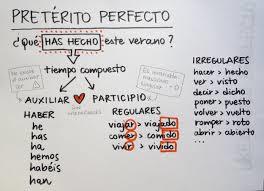 PRETÉRITO PERFECTO
¿Qué HAS HECHO este verano?
tiempo compuesto
AUXILIAR ♥ PARTICIPIO
son inseparables
HABER
he
has
ha
hemos
habéis
han
REGULARES
viajar > viajado
comer > comido
vivir > vivido
IRREGULARES
hacer > hecho
ver > visto
decir > dicho
poner > puesto
volver > vuelto
romper > roto
abrir > abierto
...